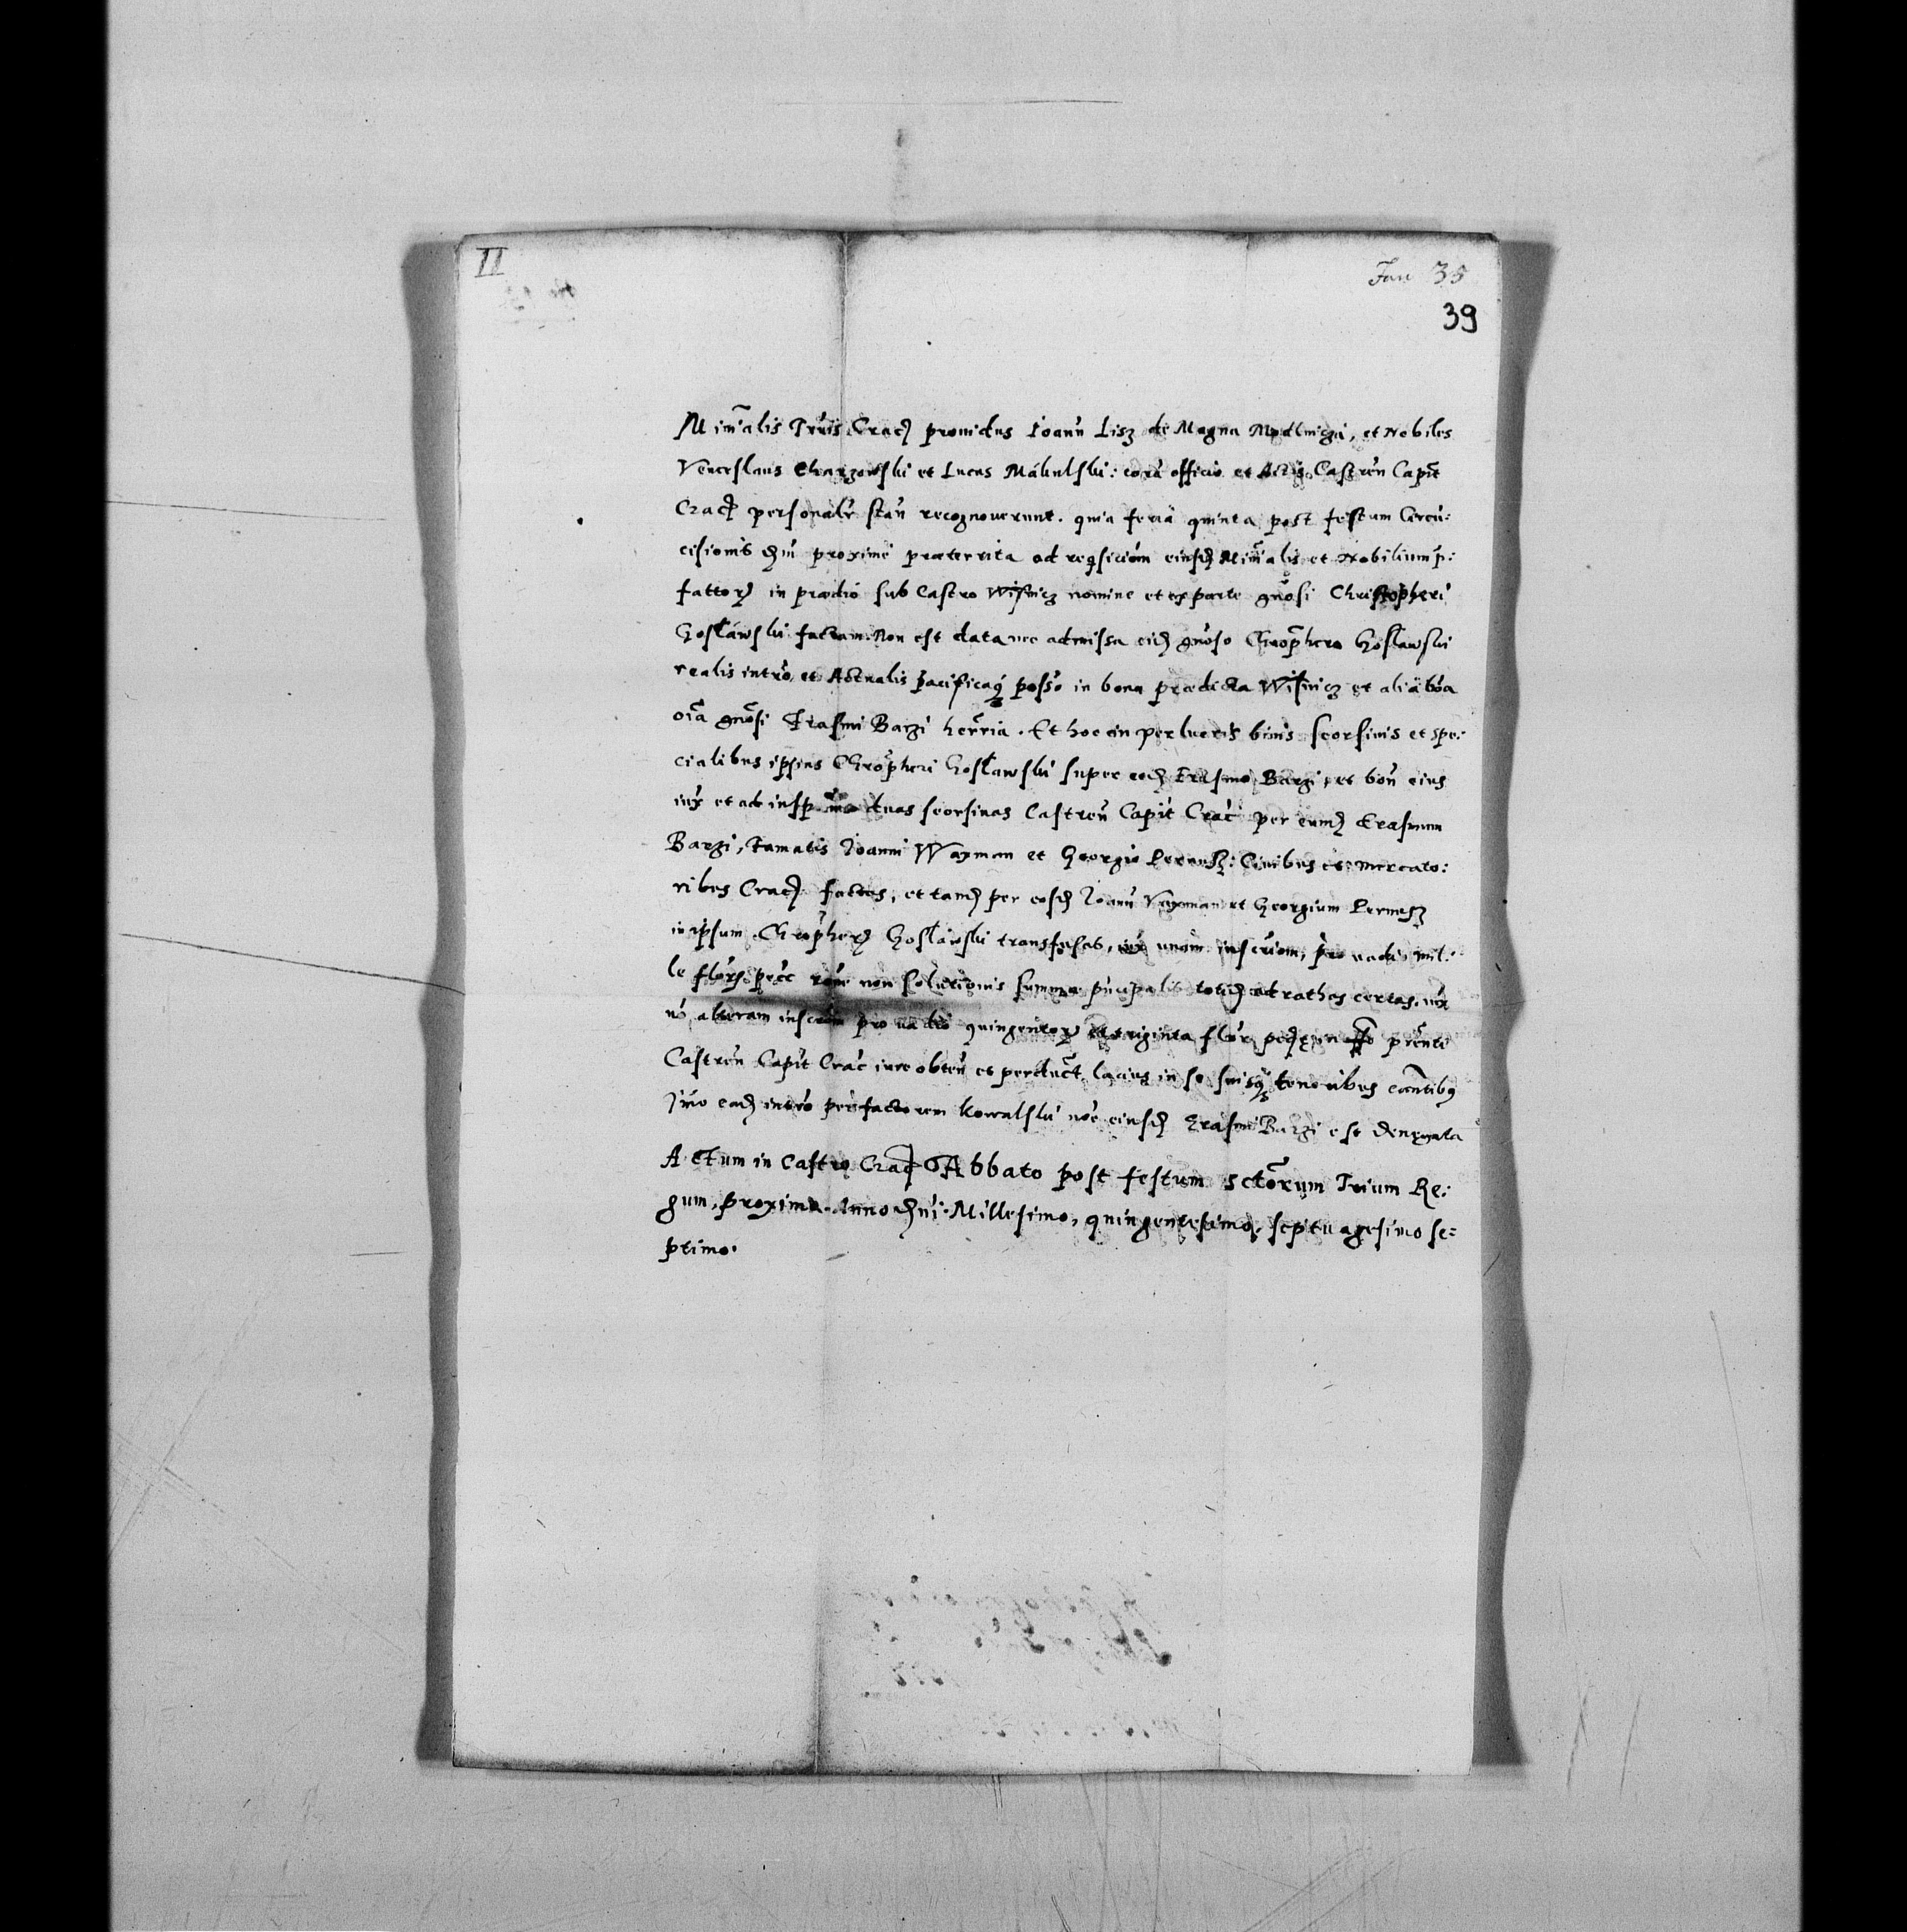 II
Jan 35
39
Minĩalis Trŕis Crac̃ prouidus Ioanñ Lisz de Magna Modlnicza, et Nobiles
Venceslaus Charzowski et Lucas Mákulski: corã officio et Actis Castreñ Capit̃
Crac̃ personalr̃ stañ recognouerunt. quia feria quinta post festum Circũ:
cisionis dñi proximè præterrita ad reqsiciõm eiusd̃ Minĩalis et Nobilium p̃:
fattorꝝ in prædio sub Castro Wisnicz nomine et ex parte gñosi Christopheri
Gosławski factam. Non est data nec admissa eid̃ gñoso Chrõphero Gosławski
realis intrõ. et Actualis pacificaqꝫ posso͂ in bona prædicta Wisnicz et alia bõa
oĩa gñosi Erasmi Barzi her̃ria. Et hoc in per lucris binis seorsinis et spe:
cialibus ipsius Chrõpheri Gosławski super eod̃ Erasmo Barzi, et boñ eius
iux et ad insp duas seorsinas Castreñ Capit̃ Crac̃ per eumd̃ Erasmum
Barzi, famatis Joanni Waxman et Georgio Pernusz: Ciuibus et mercato:
ribus Crac̃ factas, et tand̃ per eosd̃ Joanñ Vaxman et Georgium Pernusz
in ipsum Chrõpherꝝ Gosławski transfusas, iux unam inscrĩom, pro vadio mil:
le flõrꝝ pecc̃ rõne non solutionis summæ pñcipalis totid̃ ad rathas certas, iux
uõ alteram inscrĩom pro vadio quingentorꝝ et triginta flõr p̃ñte
Castreñ Capit̃ Crac̃ iure obteñ et perduct̃. lacius in se suisqꝫ tenoribus cañtibꝯ
Jm̃o ead̃ intrõ per factorem Kowalski nõe eiusd̃ Erasmi Barzi est denegata
Actum in Castro Crac̃ SAbbato post festum sctõrum Trium Re:
gum, proximo. Anno dñi Millesimo, quingentesimo, septuagesimo se=
ptimo.